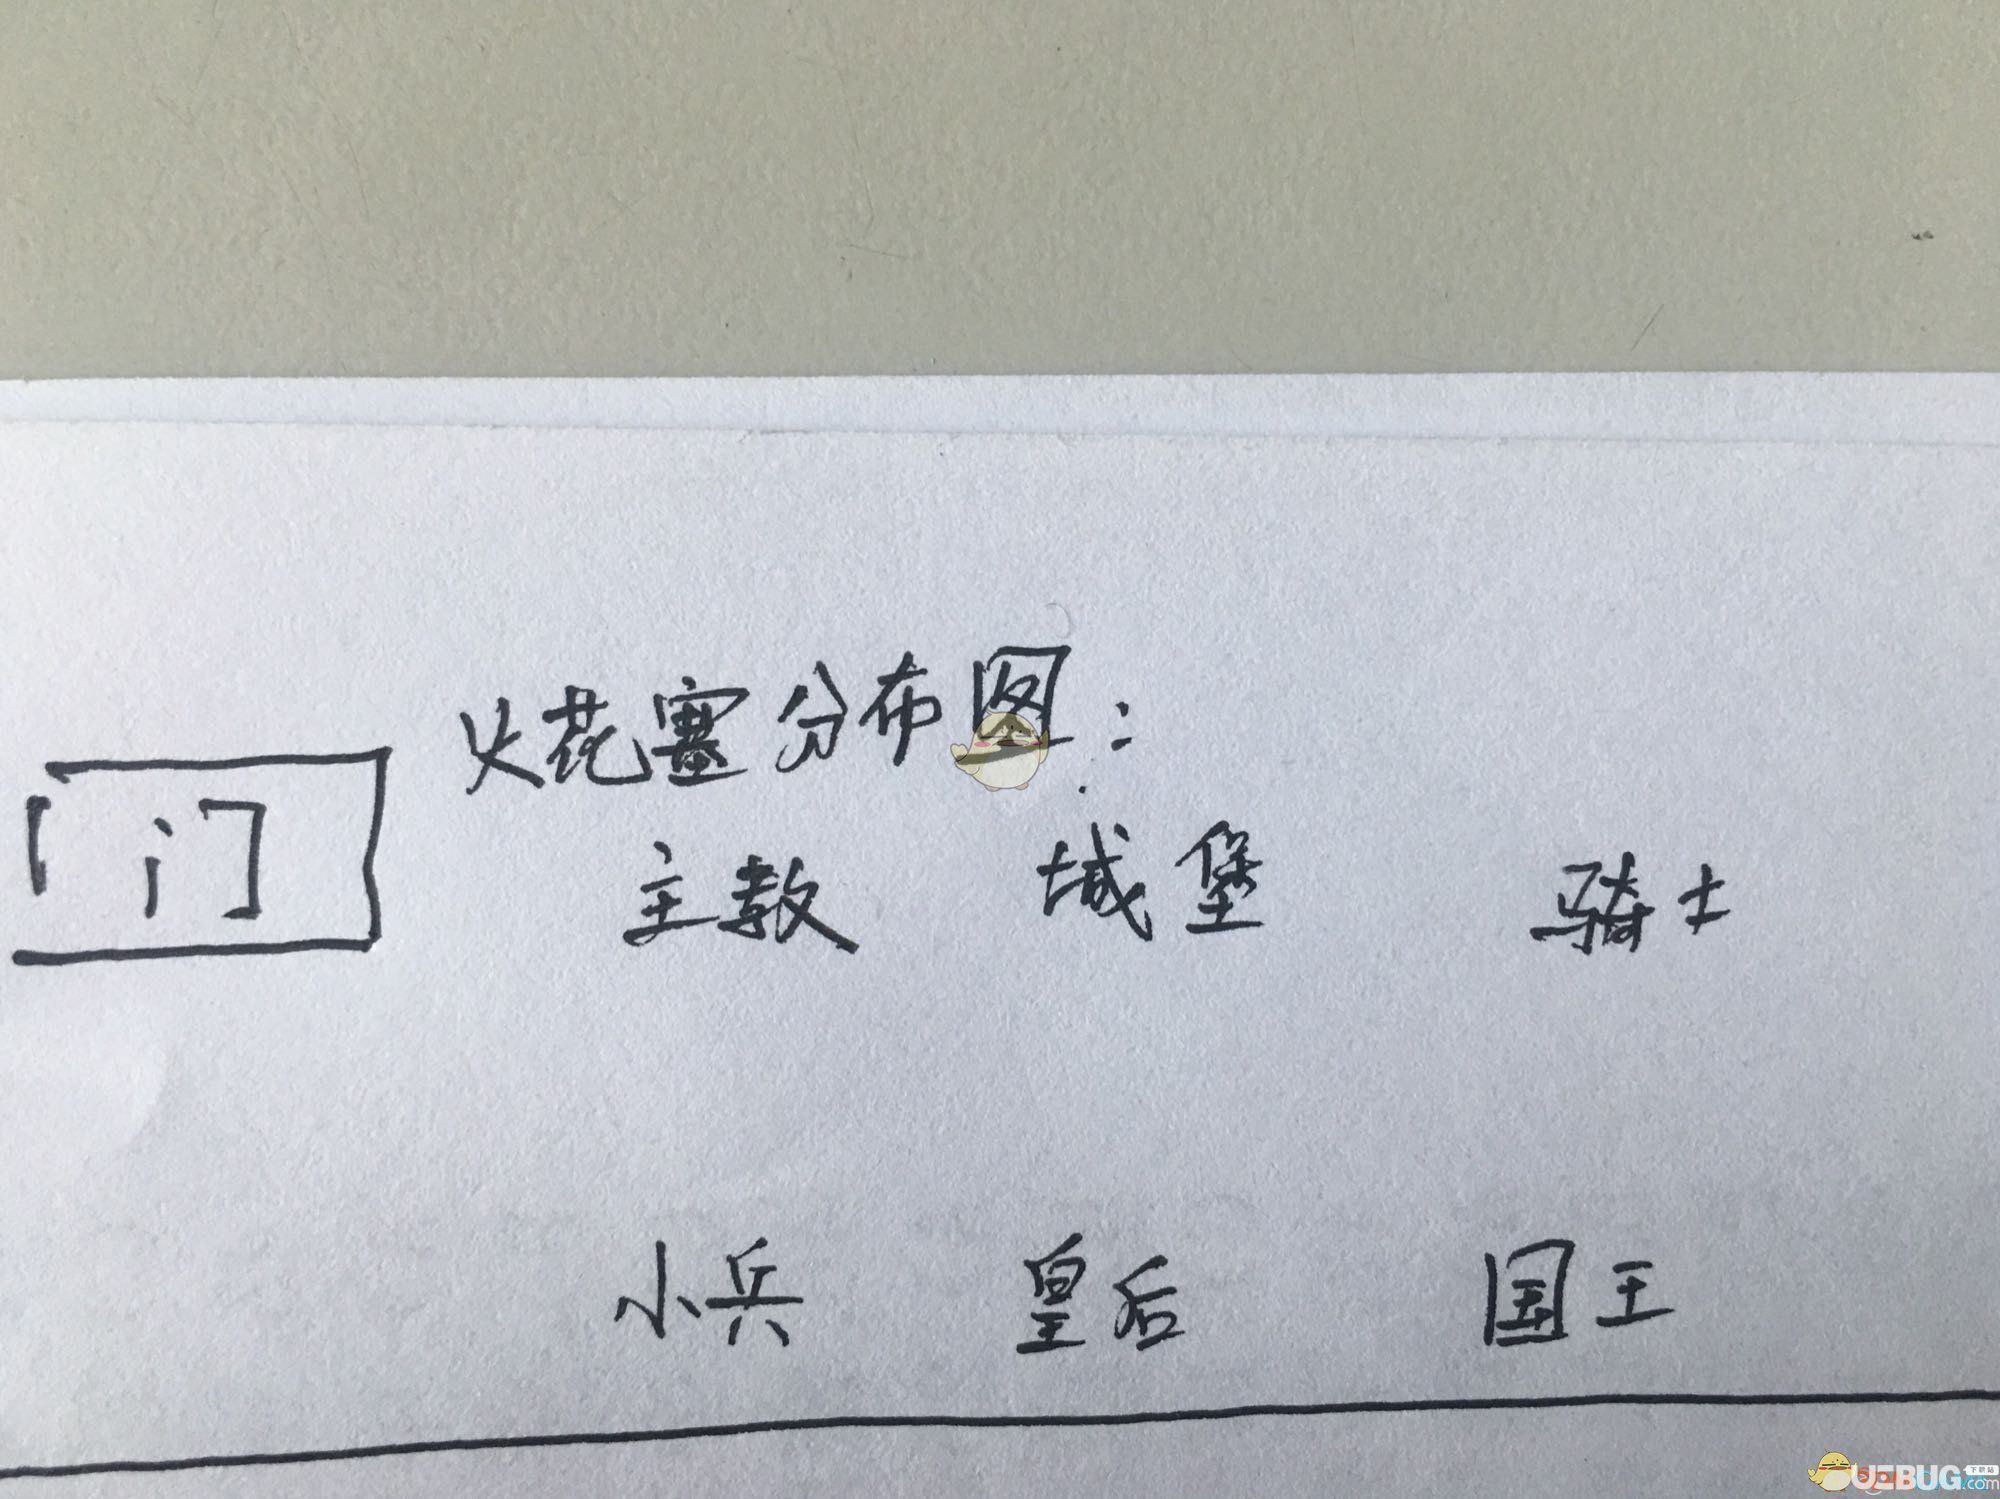 火花塞分布图:
门
主教 城堡 骑士
小兵 皇后 国王
UEBUG 下载站
.com